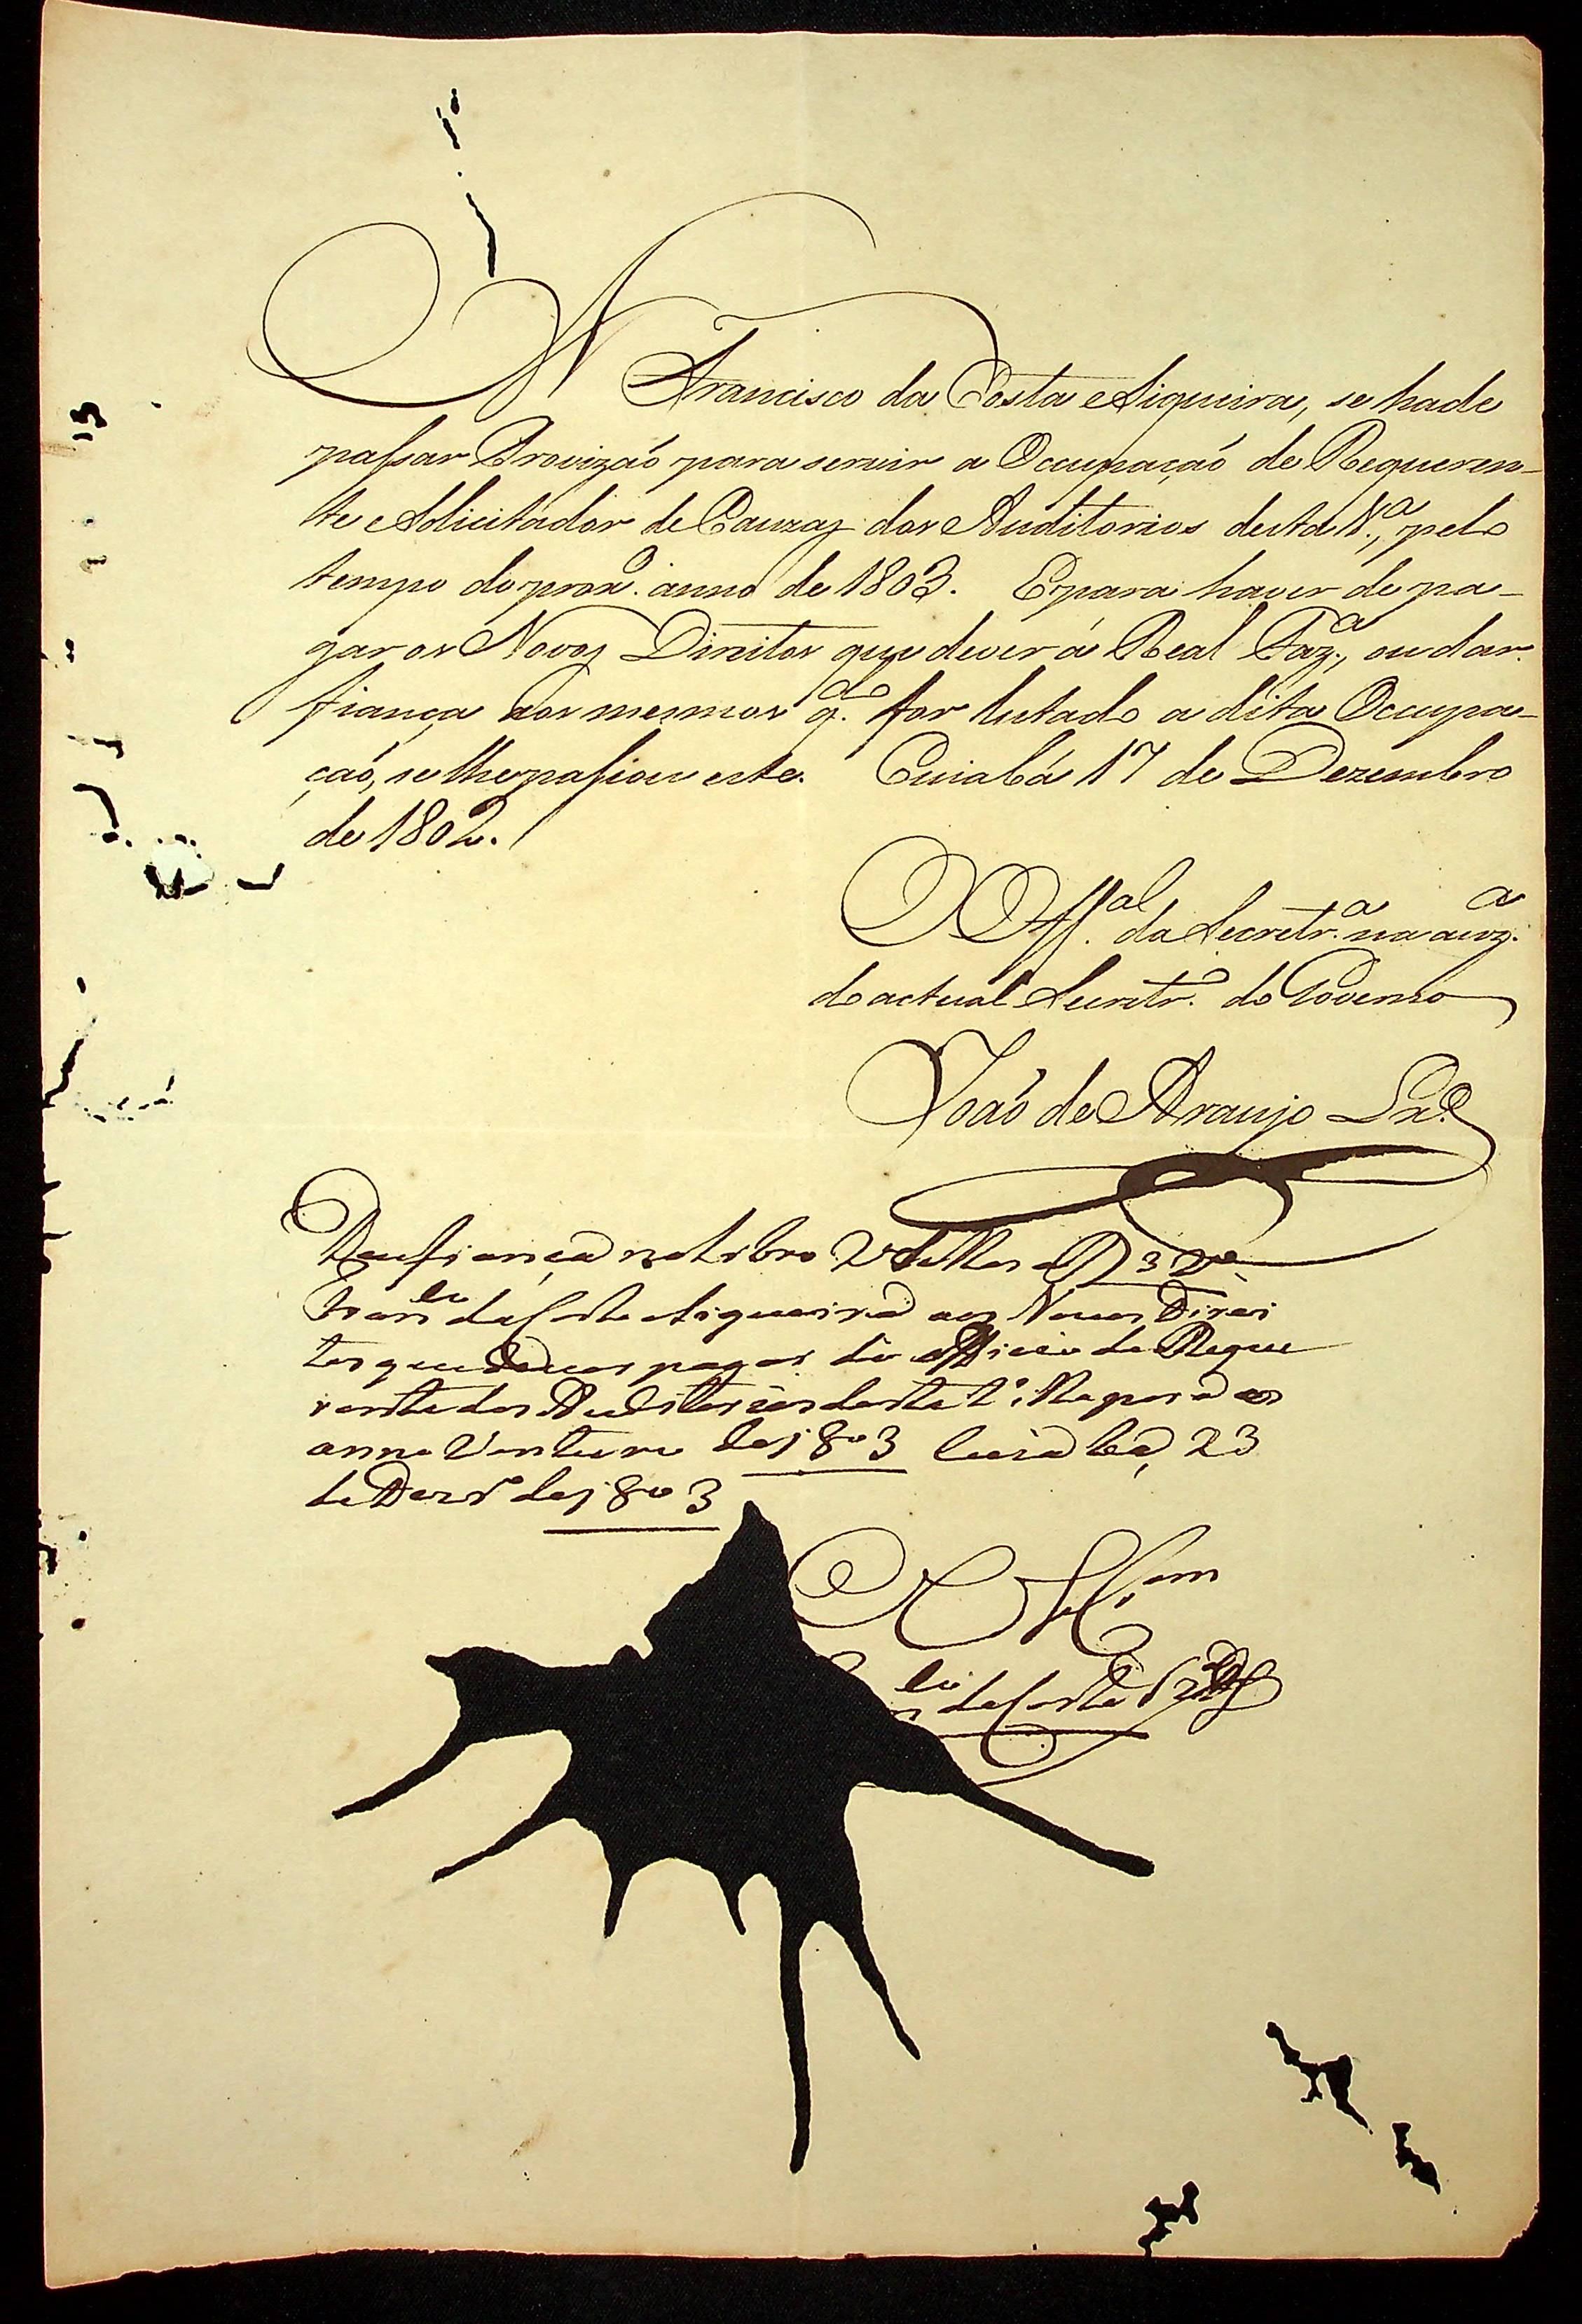 A Francisco da Costa e Siqueira, se hade
passar Provizaõ para servir a Occupaçaõ de Requeren-
te e Solicitador de Cauzas dos Auditorios desta V.ª, pelo
tempo do prox.º anno de 1803. E para haver de pa-
gar os Novos Direitos que dever á Real Faz.ª, ou dar
fiança aos mesmos q.do for lutado a dita Occupa-
çaõ, se lhe passou este. Cuiabá 17 de Dezembro
de 1802.
O Off.al da Secretr.ª na auz.ª
do actual Secretr.º do Governo
Joaõ de Araujo
Deu fiança no Libro 2º
Fran.co da Costa e Siqueira aos Novos Direi
tos que deve pagar do Officio de Reque
rente dos Auditorios desta V.ª para o
anno Venturo de 1803 Cuiabá, 23
de Dezr.º de 1803
da Costa